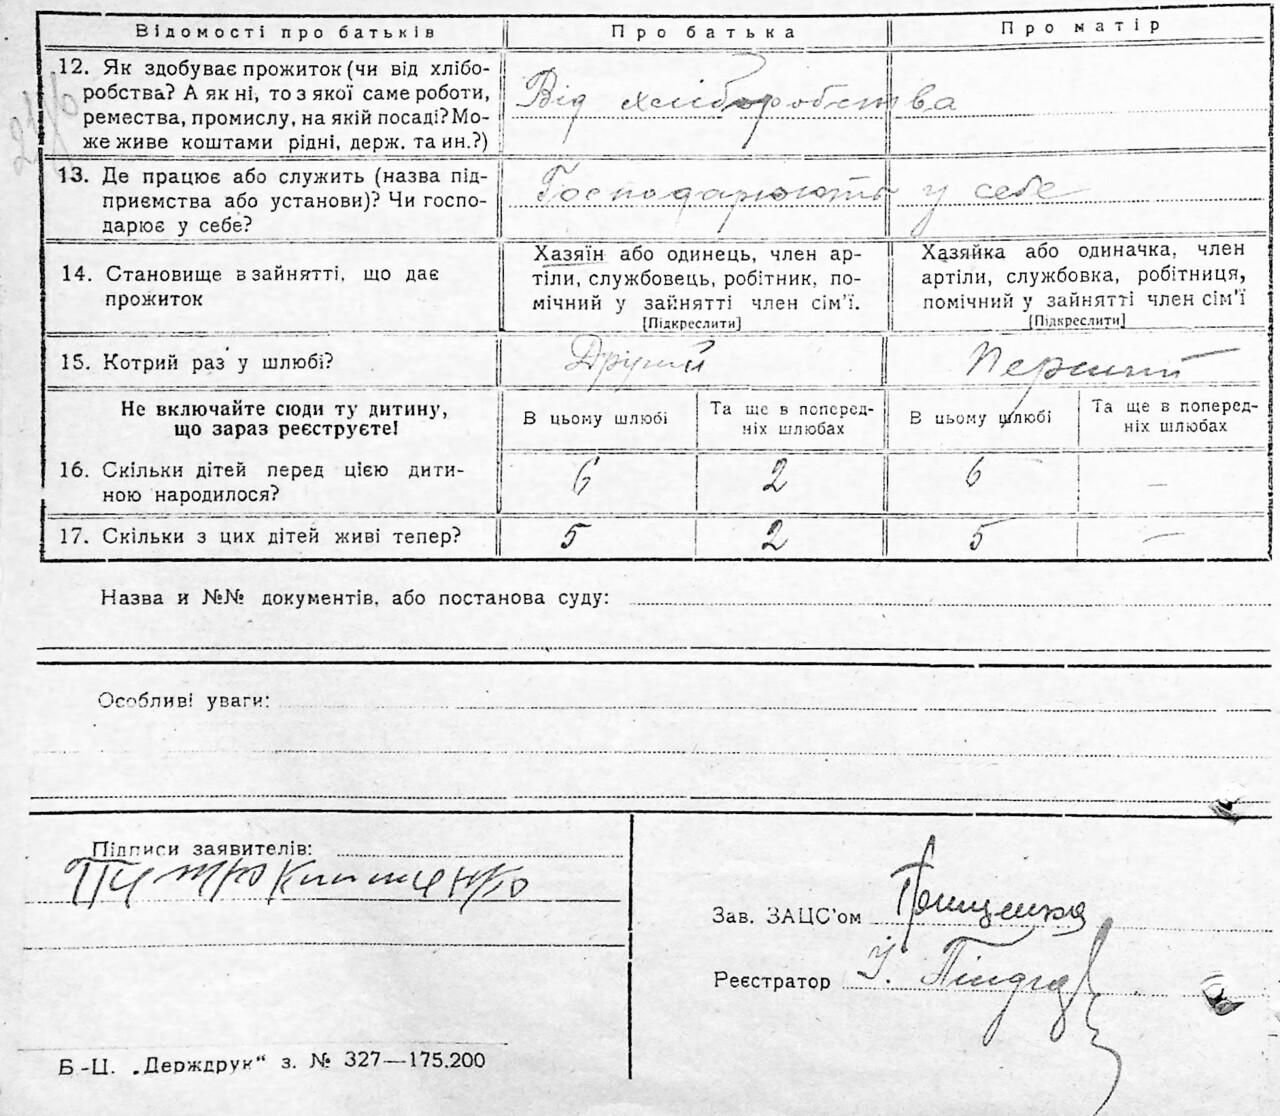 Відомості про батьків Про батька Про матір
12. Як здобуває прожиток (чи від хлібо-
робства? А як ні, то з якої саме роботи,
ремества, промислу, на якій посаді? Мо-
же живе коштами рідні, держ. та ин.?)
Від хліборобства
13. Де працює або служить (назва під-
приємства або установи)? Чи госпо-
дарює у себе?
Господарюють у себе
14. Становище в зайнятті, що дає
прожиток
Хазяїн або одинець, член ар-
тіли, службовець, робітник, по-
мічний у зайнятті член сім'ї.
[Підкреслити]
Хазяйка або одиначка, член
артіли, службовка, робітниця,
помічний у зайнятті член сім'ї
[Підкреслити]
15. Котрий раз у шлюбі? Другий Перший
Не включайте сюди ту дитину,
що зараз реєструєте!
В цьому шлюбі
Та ще в поперед-
ніх шлюбах
В цьому шлюбі
Та ще в поперед-
ніх шлюбах
16. Скільки дітей перед цією дити-
ною народилося?
6 2 6 —
17. Скільки з цих дітей живі тепер? 5 2 5 —
Назва и №№ документів, або постанова суду:
Особливі уваги:
Підписи заявителів:
Зав. ЗАЦС'ом
Реєстратор
Б-Ц. „Держдрук“ з. № 327—175.200